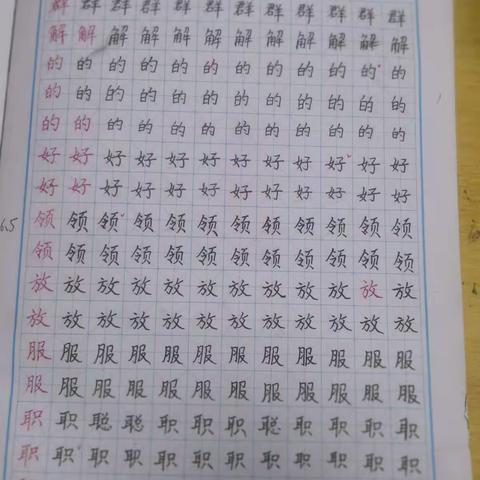 群群群群群群群群群群群群
解解解解解解解解解解解解
的的的的的的的的的的的的
的的的的的的的的的的的的
的的的的的的的的的的的的
好好好好好好好好好好好好
好好好好好好好好好好好好
65 领领领领领领领领领领领领
领领领领领领领领领领领领
放放放放放放放放放放放放
放放放放放放放放放放放放
服服服服服服服服服服服服
服服服服服服服服服服服服
职职聪聪职职职聪职职职职
职职职职职职职职职职职职